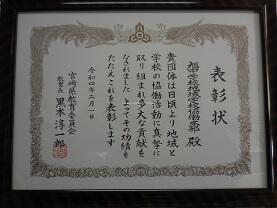 表彰状
旭中学校地域学校協働本部 殿
貴団体は日頃より地域と
学校の協働活動に真摯に
取り組まれ多大な貢献を
なされました よってその功績を
たたえこれを表彰します
令和四年二月一日
宮崎県教育委員会
教育長 黒木淳一郎